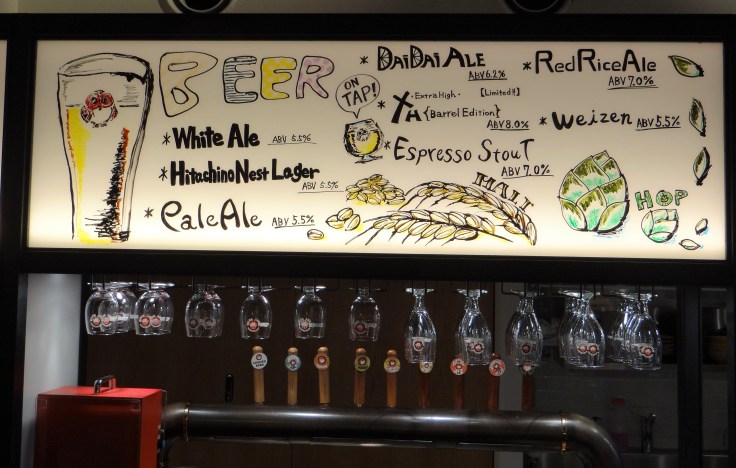 BEER
* White Ale ABV 5.5%
* Hitachino Nest Lager ABV 5.5%
* Pale Ale ABV 5.5%
ON TAP!
* DAiDAi ALE ABV 6.2%
* XH · Extra High · [Limited!!]
{Barrel Edition} ABV 8.0%
* Espresso StouT ABV 7.0%
* Red Rice Ale ABV 7.0%
* Weizen ABV 5.5%
HOP